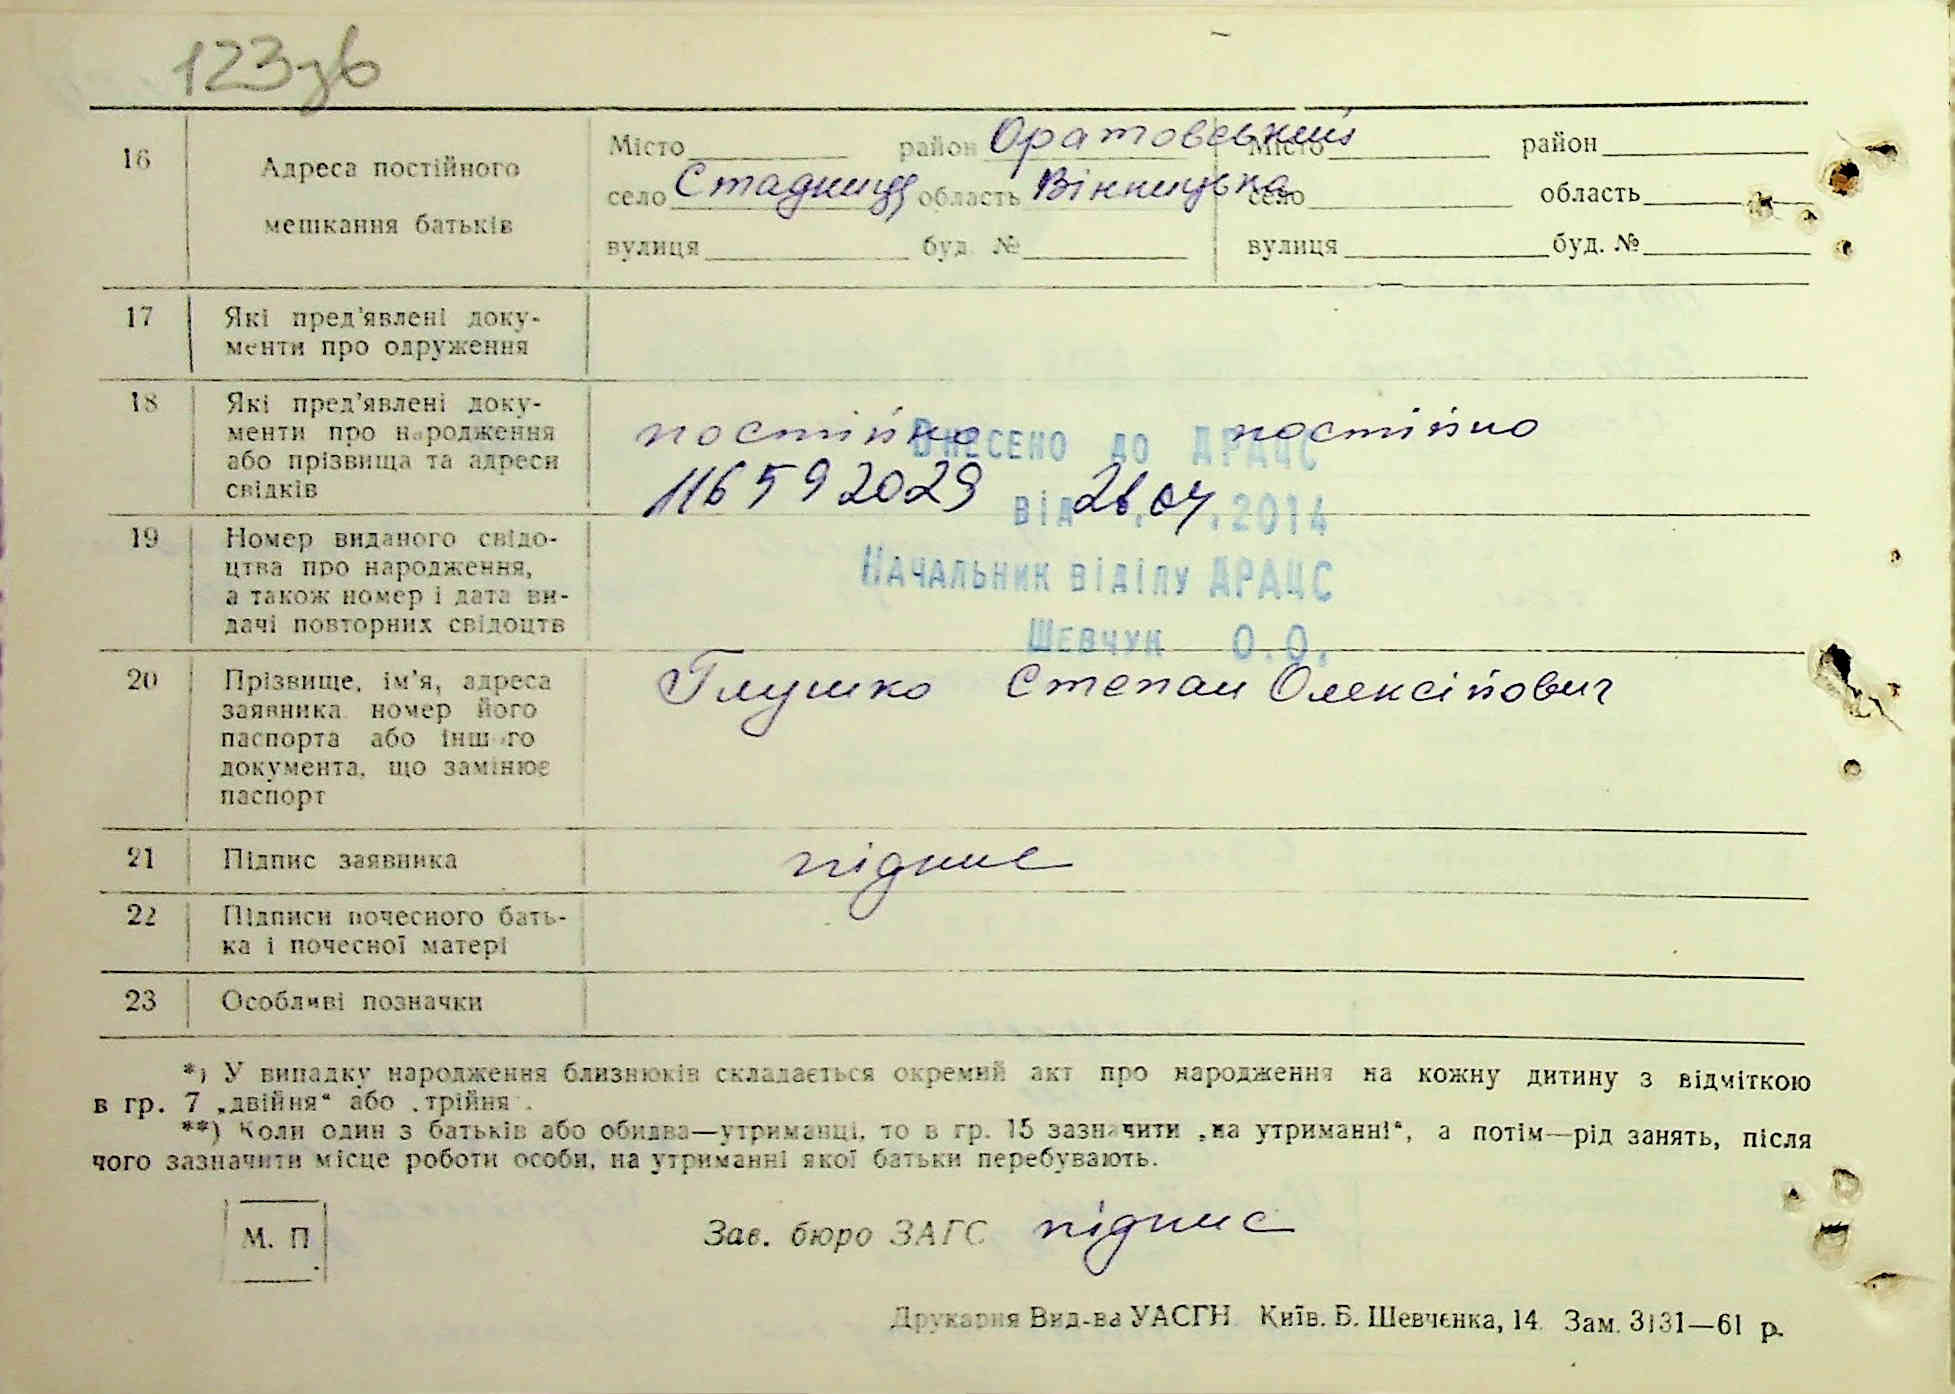 123зв
16 Адреса постійного мешкання батьків
Місто район Оратовський Місто район
село Стадниця область Вінницька село область
вулиця буд. № вулиця буд. №
17 Які пред'явлені доку-
менти про одруження
18 Які пред'явлені доку-
менти про народження
або прізвища та адреси
свідків
постійно постійно
Внесено до ДРАЦС
116592029 від 26.04.2014
Начальник відділу ДРАЦС
Шевчук О.О.
19 Номер виданого свідо-
цтва про народження,
а також номер і дата ви-
дачі повторних свідоцтв
20 Прізвище, ім'я, адреса
заявника номер його
паспорта або іншого
документа, що замінює
паспорт
Глушко Степан Олексійович
21 Підпис заявника підпис
22 Підписи почесного бать-
ка і почесної матері
23 Особливі позначки
*) У випадку народження близнюків складається окремий акт про народження на кожну дитину з відміткою
в гр. 7 „двійня“ або „трійня“.
**) Коли один з батьків або обидва—утриманці, то в гр. 15 зазначити „на утриманні“, а потім—рід занять, після
чого зазначити місце роботи особи, на утриманні якої батьки перебувають.
М. П.
Зав. бюро ЗАГС підпис
Друкарня Вид-ва УАСГН. Київ. Б. Шевченка, 14. Зам. 3131—61 р.